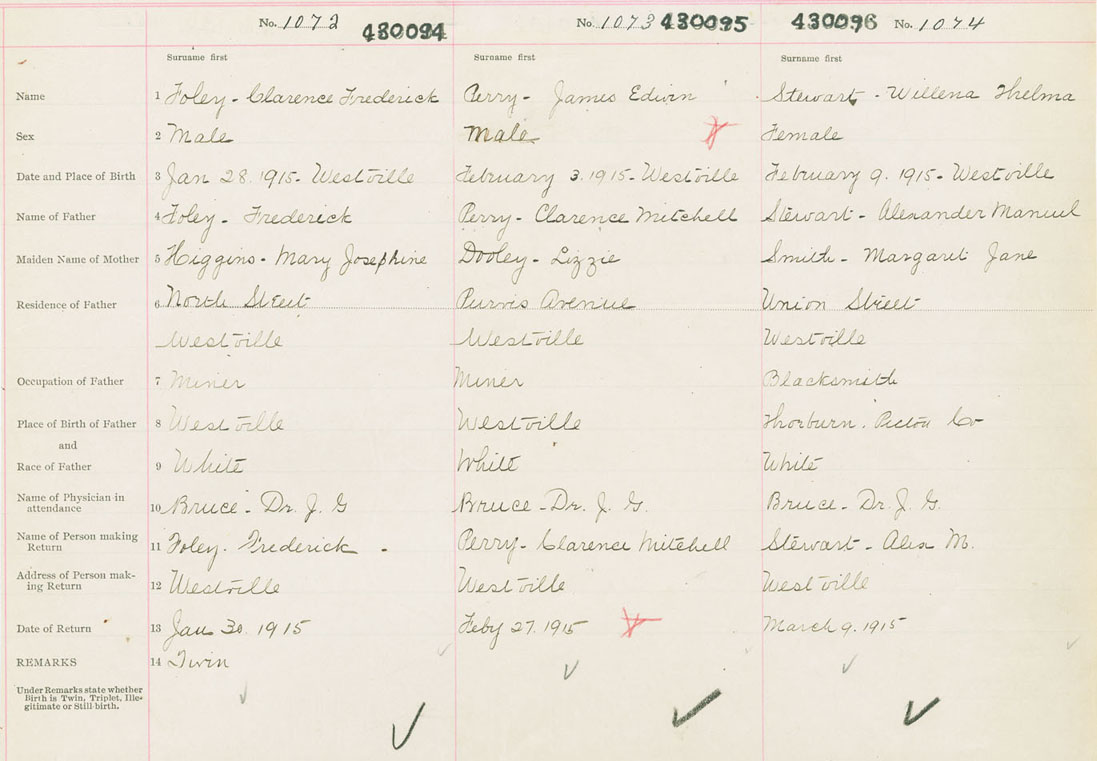 No. 1072 430094 No. 1073 430095 430096 No. 1074
Surname first Surname first Surname first
Name 1 Foley - Clarence Frederick Perry - James Edwin Stewart - Willena Thelma
Sex 2 Male Male Female
Date and Place of Birth 3 Jan 28. 1915 - Westville February 3. 1915 - Westville February 9. 1915 - Westville
Name of Father 4 Foley - Frederick Perry - Clarence Mitchell Stewart - Alexander Manuel
Maiden Name of Mother 5 Higgins - Mary Josephine Dooley - Lizzie Smith - Margaret Jane
Residence of Father 6 North Street Purvis Avenue Union Street
Westville Westville Westville
Occupation of Father 7 Miner Miner Blacksmith
Place of Birth of Father 8 Westville Westville Thorburn. Pictou Co
and
Race of Father 9 White White White
Name of Physician in
attendance 10 Bruce - Dr. J. G Bruce - Dr. J. G. Bruce - Dr. J. G.
Name of Person making
Return 11 Foley - Frederick - Perry - Clarence Mitchell Stewart - Alex M.
Address of Person mak-
ing Return 12 Westville Westville Westville
Date of Return 13 Jan 30 1915 Feby 27. 1915 March 9. 1915
REMARKS 14 Twin
Under Remarks state whether
Birth is Twin, Triplet, Ille-
gitimate or Still-birth.